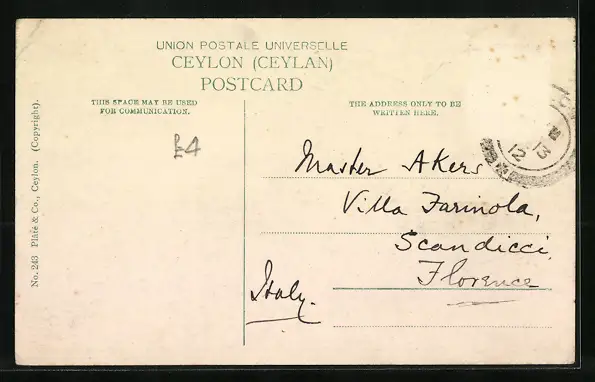 UNION POSTALE UNIVERSELLE
CEYLON (CEYLAN)
POSTCARD
THIS SPACE MAY BE USED
FOR COMMUNICATION.
THE ADDRESS ONLY TO BE
WRITTEN HERE.
£4
Master Akers
Villa Farinola,
Scandicci,
Florence
Italy.
No. 243 Plâté & Co., Ceylon. (Copyright).
13
12